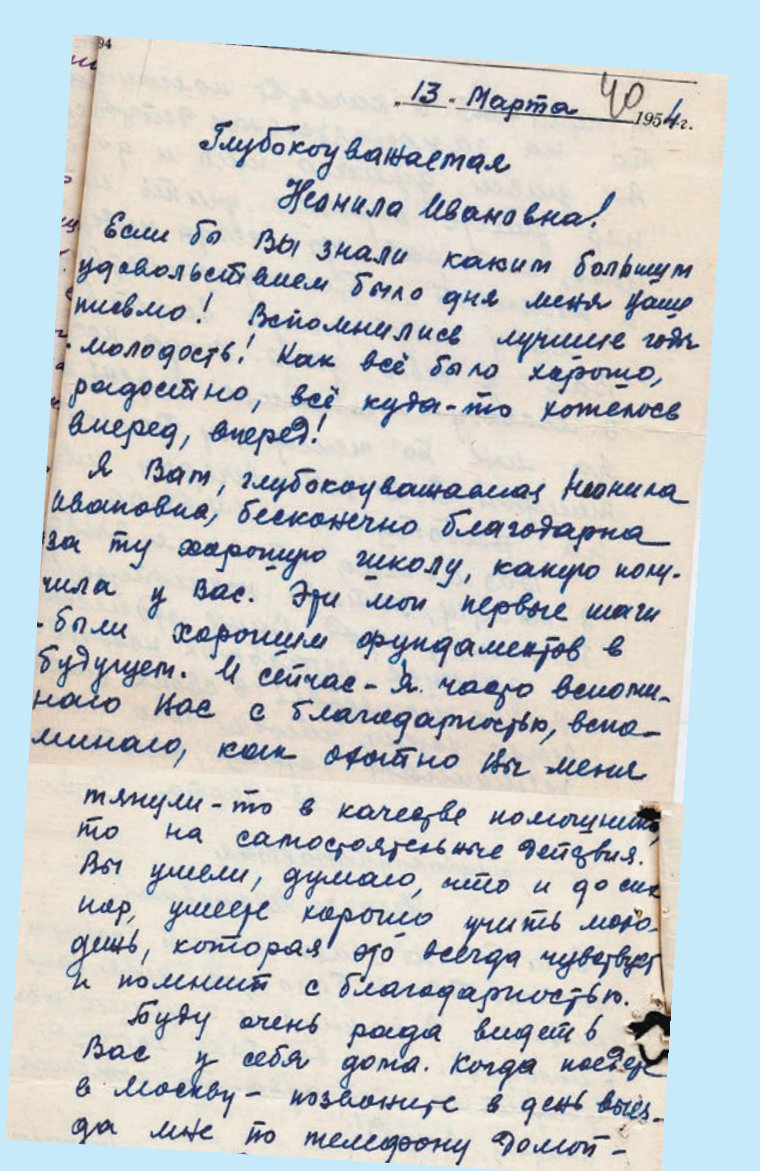 94
40
„13 - Марта 1954 г.
Глубокоуважаемая
Неонила Ивановна!
Если бы Вы знали каким большим
удовольствием было для меня Ваше
письмо! Вспомнились лучшие годы
молодость! Как всё было хорошо,
радостно, всё куда-то хотелось
вперед, вперед!
Я Вам, глубокоуважаемая Неонила
Ивановна, бесконечно благодарна
за ту хорошую школу, какую полу-
чила у Вас. Эти мои первые шаги
были хорошим фундаментов в
будущем. И сейчас - Я часто вспоми-
наю Вас с благодарностью, вспо-
минаю, как охотно Вы меня
тянули-то в качестве помощника,
то на самостоятельные действия.
Вы умели, думаю, что и до сих
пор, умеете хорошо учить моло-
дежь, которая это всегда чувствует
и помнит с благодарностью.
Буду очень рада видеть
Вас у себя дома. Когда поедете
в Москву - позвоните в день выез-
да мне по телефону домой -